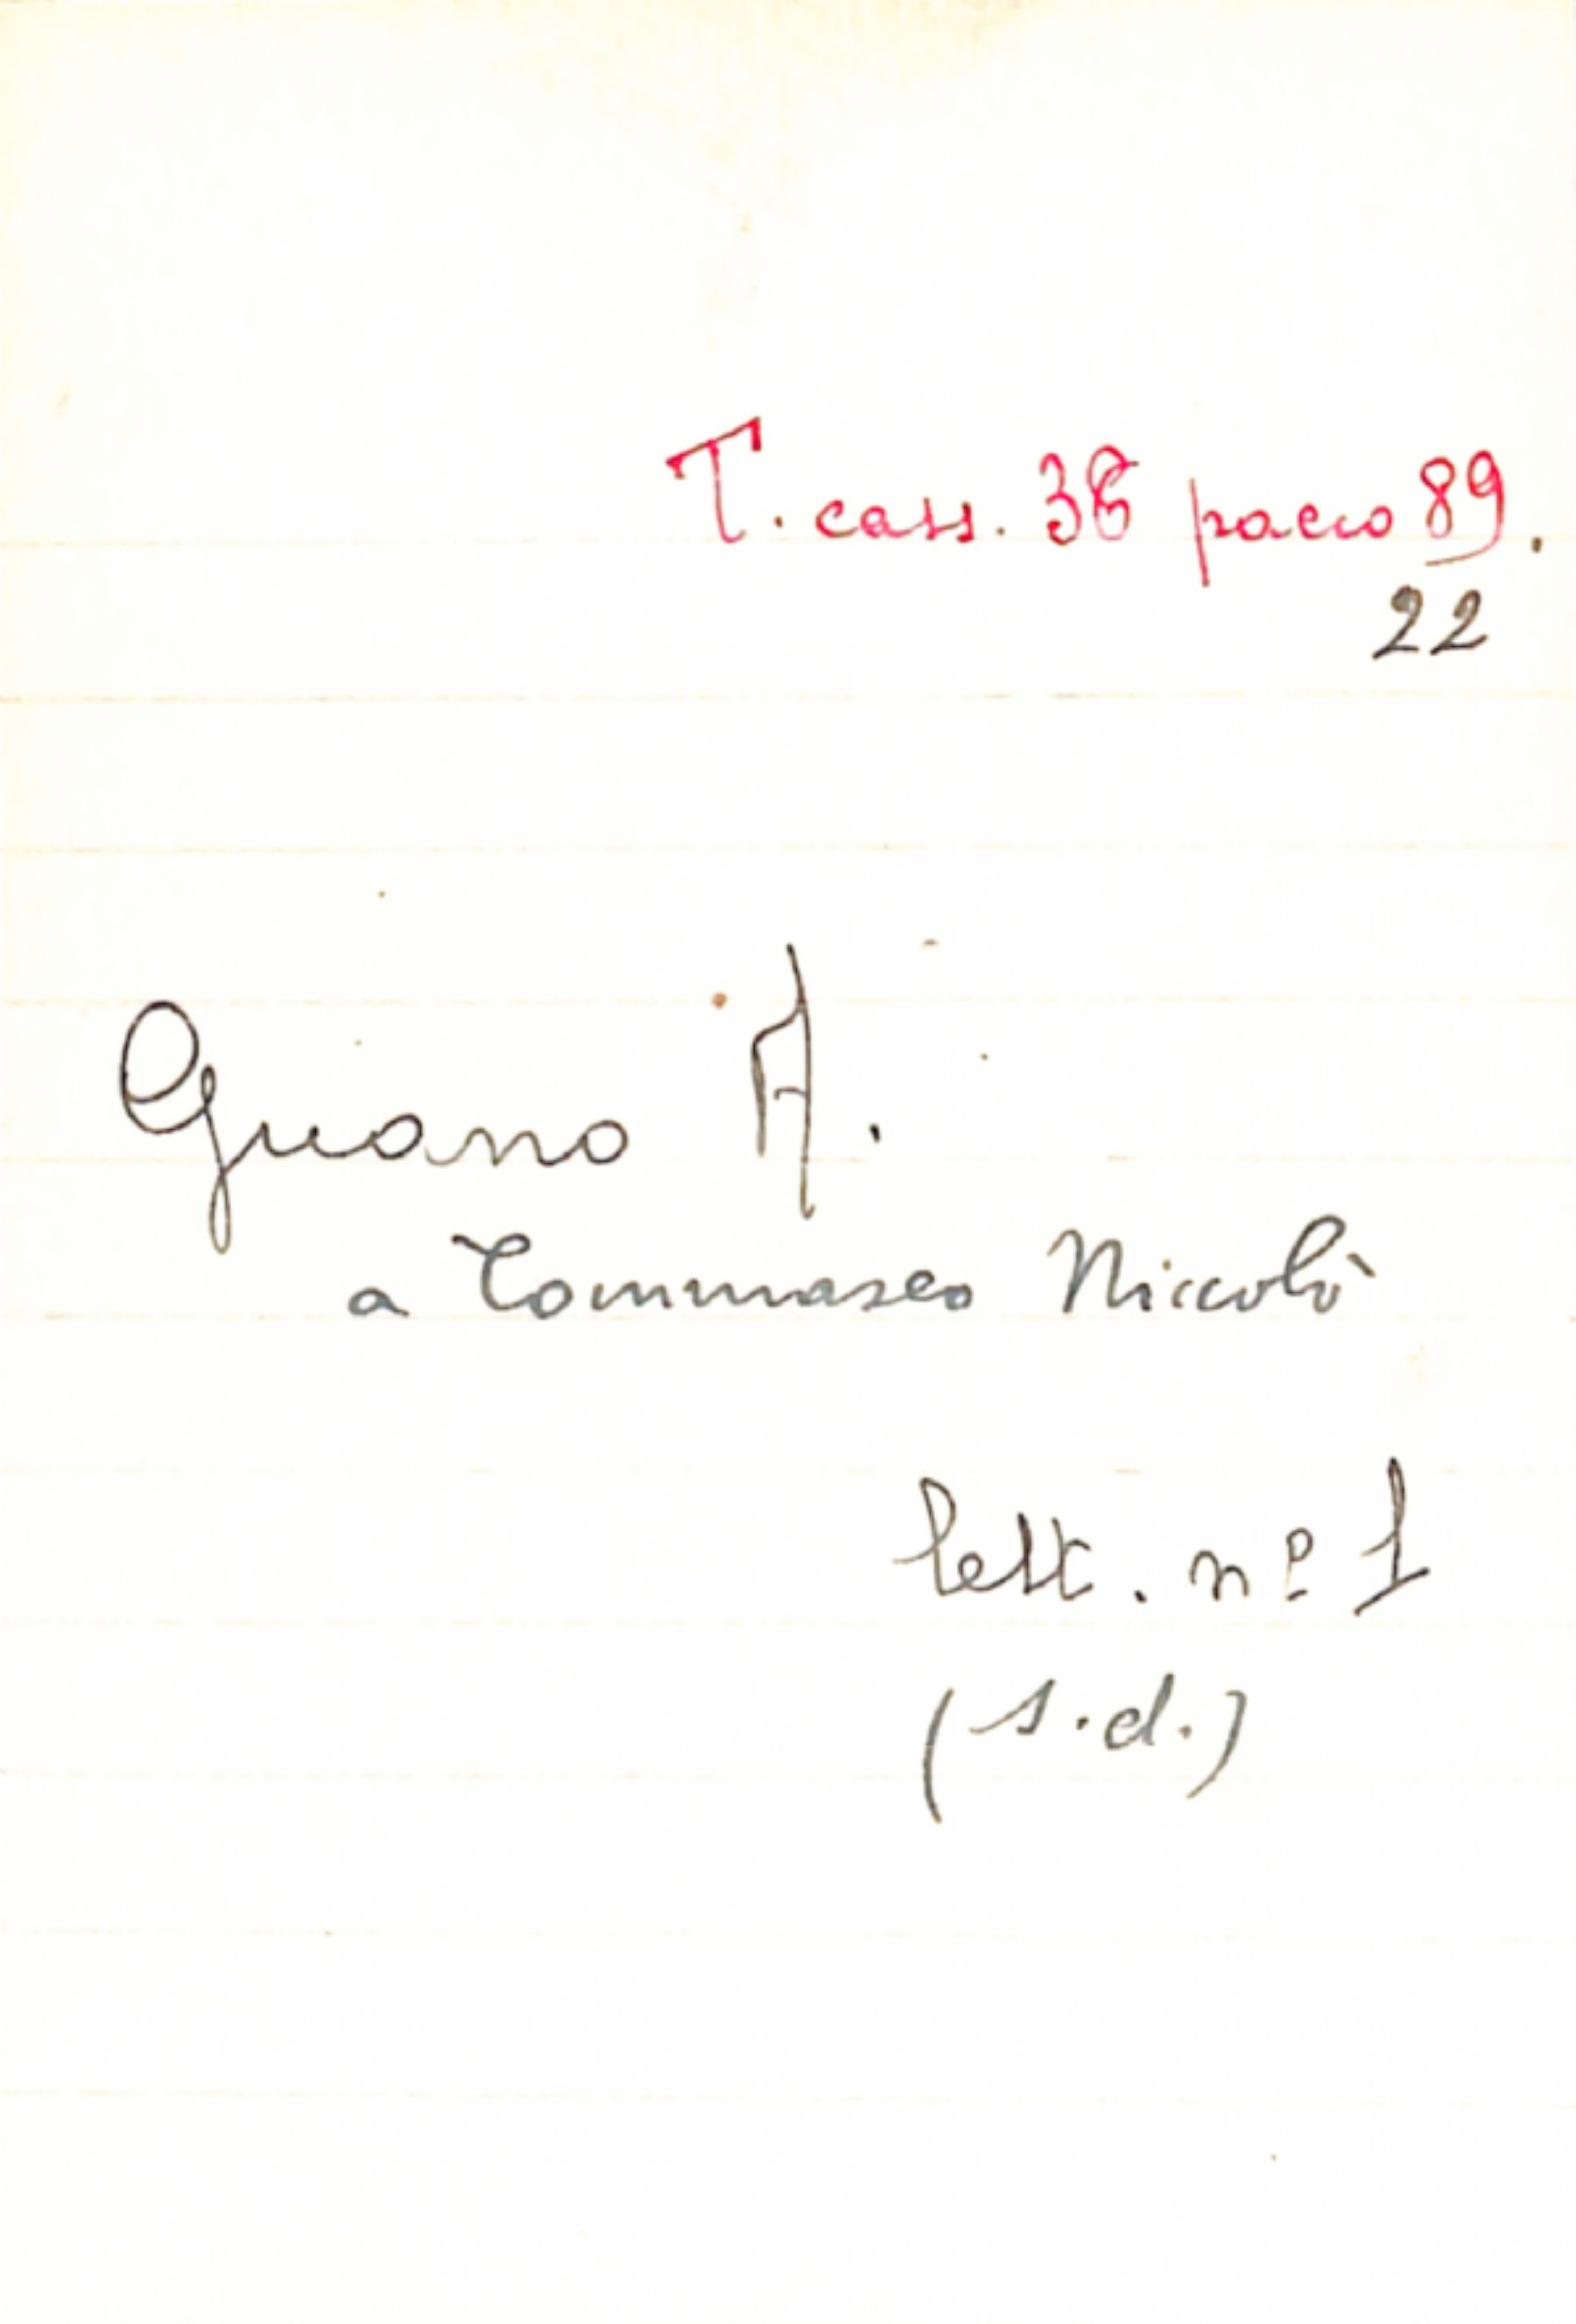 T. cass. 38 pacco 89.
22
Guano A.
a Tommaseo Niccolò
lett. nº 1
(s.d.)